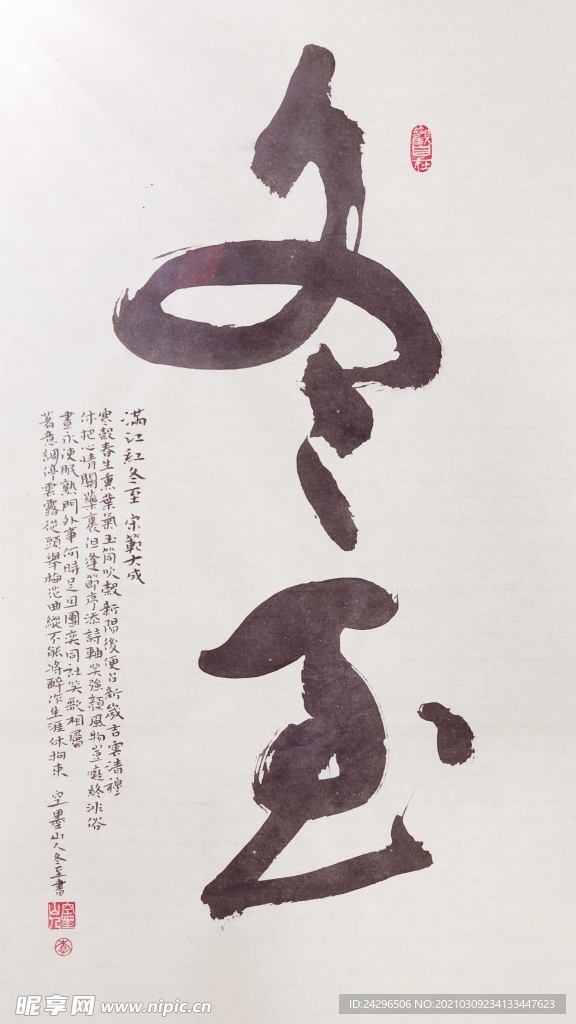 冬至
觀自在
滿江紅 冬至 宋 範大成
寒穀春生熏葉氣玉筒吹穀新陽後便占新歲吉雲清穆
休把心情關藥裏但逢節序添詩軸笑強顏風物豈癡終非俗
晝永便眠熟門外事何時足且團欒同社笑歌相屬
著意調停雲露從頭舉梅花曲縱不能將醉作生涯休拘束 空墨山人冬至書
空墨山人
李
昵享网 www.nipic.cn
ID:24296506 NO:20210309234133447623